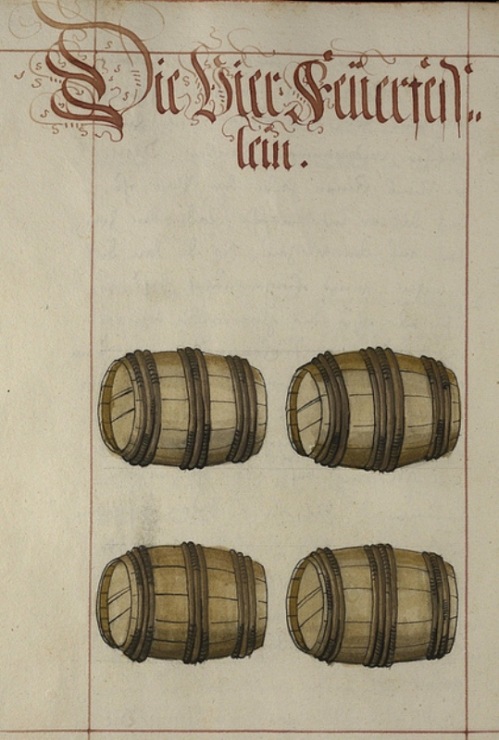 Die Vier Feüerfeß„
lein.